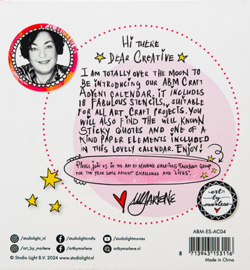 Hi THERE,
DEAR CREATIVE
I AM TOTALLY OVER THE MOON TO
BE INTRODUCING OUR ABM CRAFT
ADVENT CALENDAR, IT INCLUDES
18 FABULOUS STENCILS, SUITABLE
FOR ALL ART CRAFT PROJECTS. YOU
WILL ALSO FIND THE WELL KNOWN
STICKY QUOTES AND ONE OF A
KIND PAPER ELEMENTS INCLUDED
IN THIS LOVELY CALENDAR. ENJOY!
PLEASE JOIN US IN THE ART BY MARLENE CREATIONS FACEBOOK GROUP
FOR THE YEAR LONG ADVENT CHALLENGE AND LIVES.
MARLENE
art
by
marlene
studiolight.nl
studiolightnl
studiolightmovies
art_by_marlene
© Studio Light B.V. 2024 www.studiolight.nl
ABM-ES-AC04
8 713943 153116
Made in China